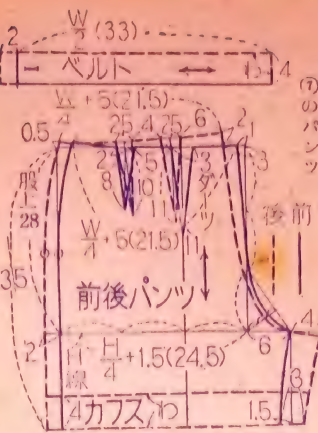 W/2 (33)
2
ベルト
わ
4
⑦のパンツ
W/4 + 5(21.5)
0.5
2.5 4 2.5 6 2
1
2 5 3 3
8 10 11
ダーツ
股上
28
W/4 + 5(21.5)
11
後 前
35
前後パンツ
2
H線
H/4 + 1.5(24.5)
6
4
4 カフス わ
1.5
3